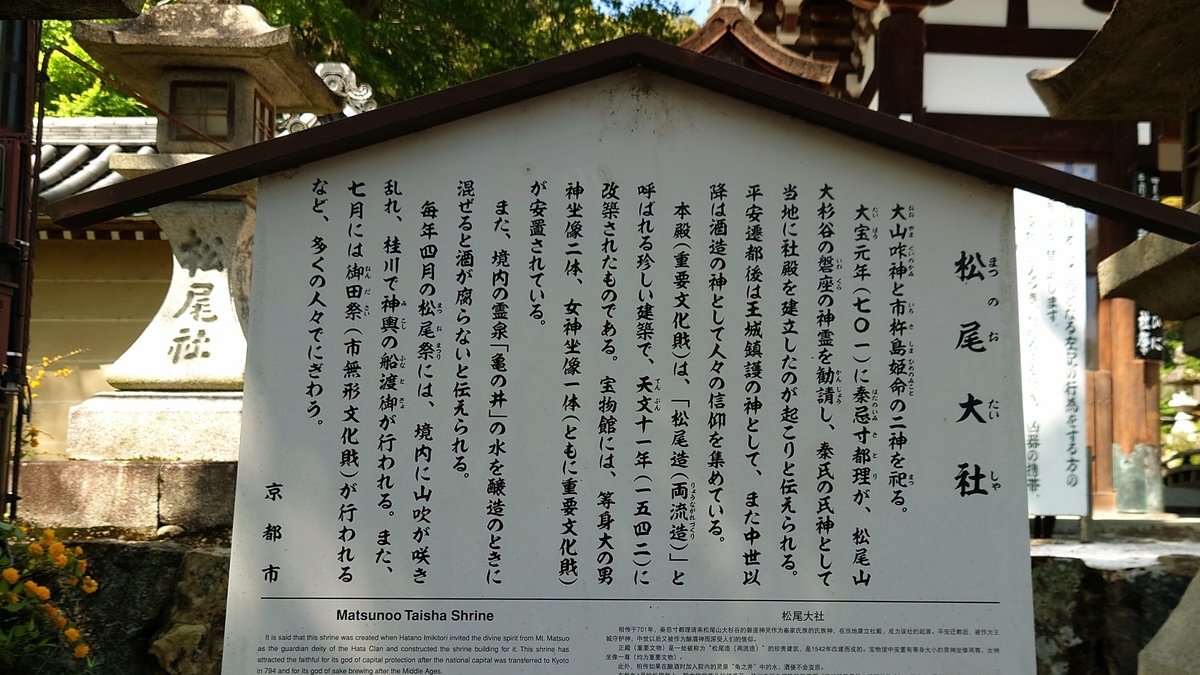 松尾大社
まつのおたいしゃ
大山咋神と市杵島姫命の二神を祀る。
大宝元年（七〇一）に秦忌寸都理が、松尾山
大杉谷の磐座の神霊を勧請し、秦氏の氏神として
当地に社殿を建立したのが起こりと伝えられる。
平安遷都後は王城鎮護の神として、また中世以
降は酒造の神として人々の信仰を集めている。
本殿（重要文化財）は、「松尾造（両流造）」と
呼ばれる珍しい建築で、天文十一年（一五四二）に
改築されたものである。宝物館には、等身大の男
神坐像二体、女神坐像一体（ともに重要文化財）
が安置されている。
また、境内の霊泉「亀の井」の水を醸造のときに
混ぜると酒が腐らないと伝えられる。
毎年四月の松尾祭には、境内に山吹が咲き
乱れ、桂川で神輿の船渡御が行われる。また、
七月には御田祭（市無形文化財）が行われる
など、多くの人々でにぎわう。
京都市
Matsunoo Taisha Shrine
It is said that this shrine was created when Hatano Imikitori invited the divine spirit from Mt. Matsuo
as the guardian deity of the Hata Clan and constructed the shrine building for it. This shrine has
attracted the faithful for its god of capital protection after the national capital was transferred to Kyoto
in 794 and for its god of sake brewing after the Middle Ages.
松尾大社
相传于701年，秦忌寸都理请来松尾山大杉谷的磐座神灵作为秦家氏族的氏族神，在当地建立社殿，成为该社的起源。平安迁都后，被作为王
城守护神，中世以后又被作为酿酒神而深受人们的信仰。
正殿（重要文物）是一处被称为“松尾造（两流造）”的珍贵建筑，是1542年改建而成的。宝物馆中安置有等身大小的男神坐像两尊、女神
坐像一尊（均为重要文物）。
此外，相传如果在酿酒时加入院内的灵泉“龟之井”中的水，酒便不会变质。
松尾社
左記の行為をする方の
凶器の携帯、